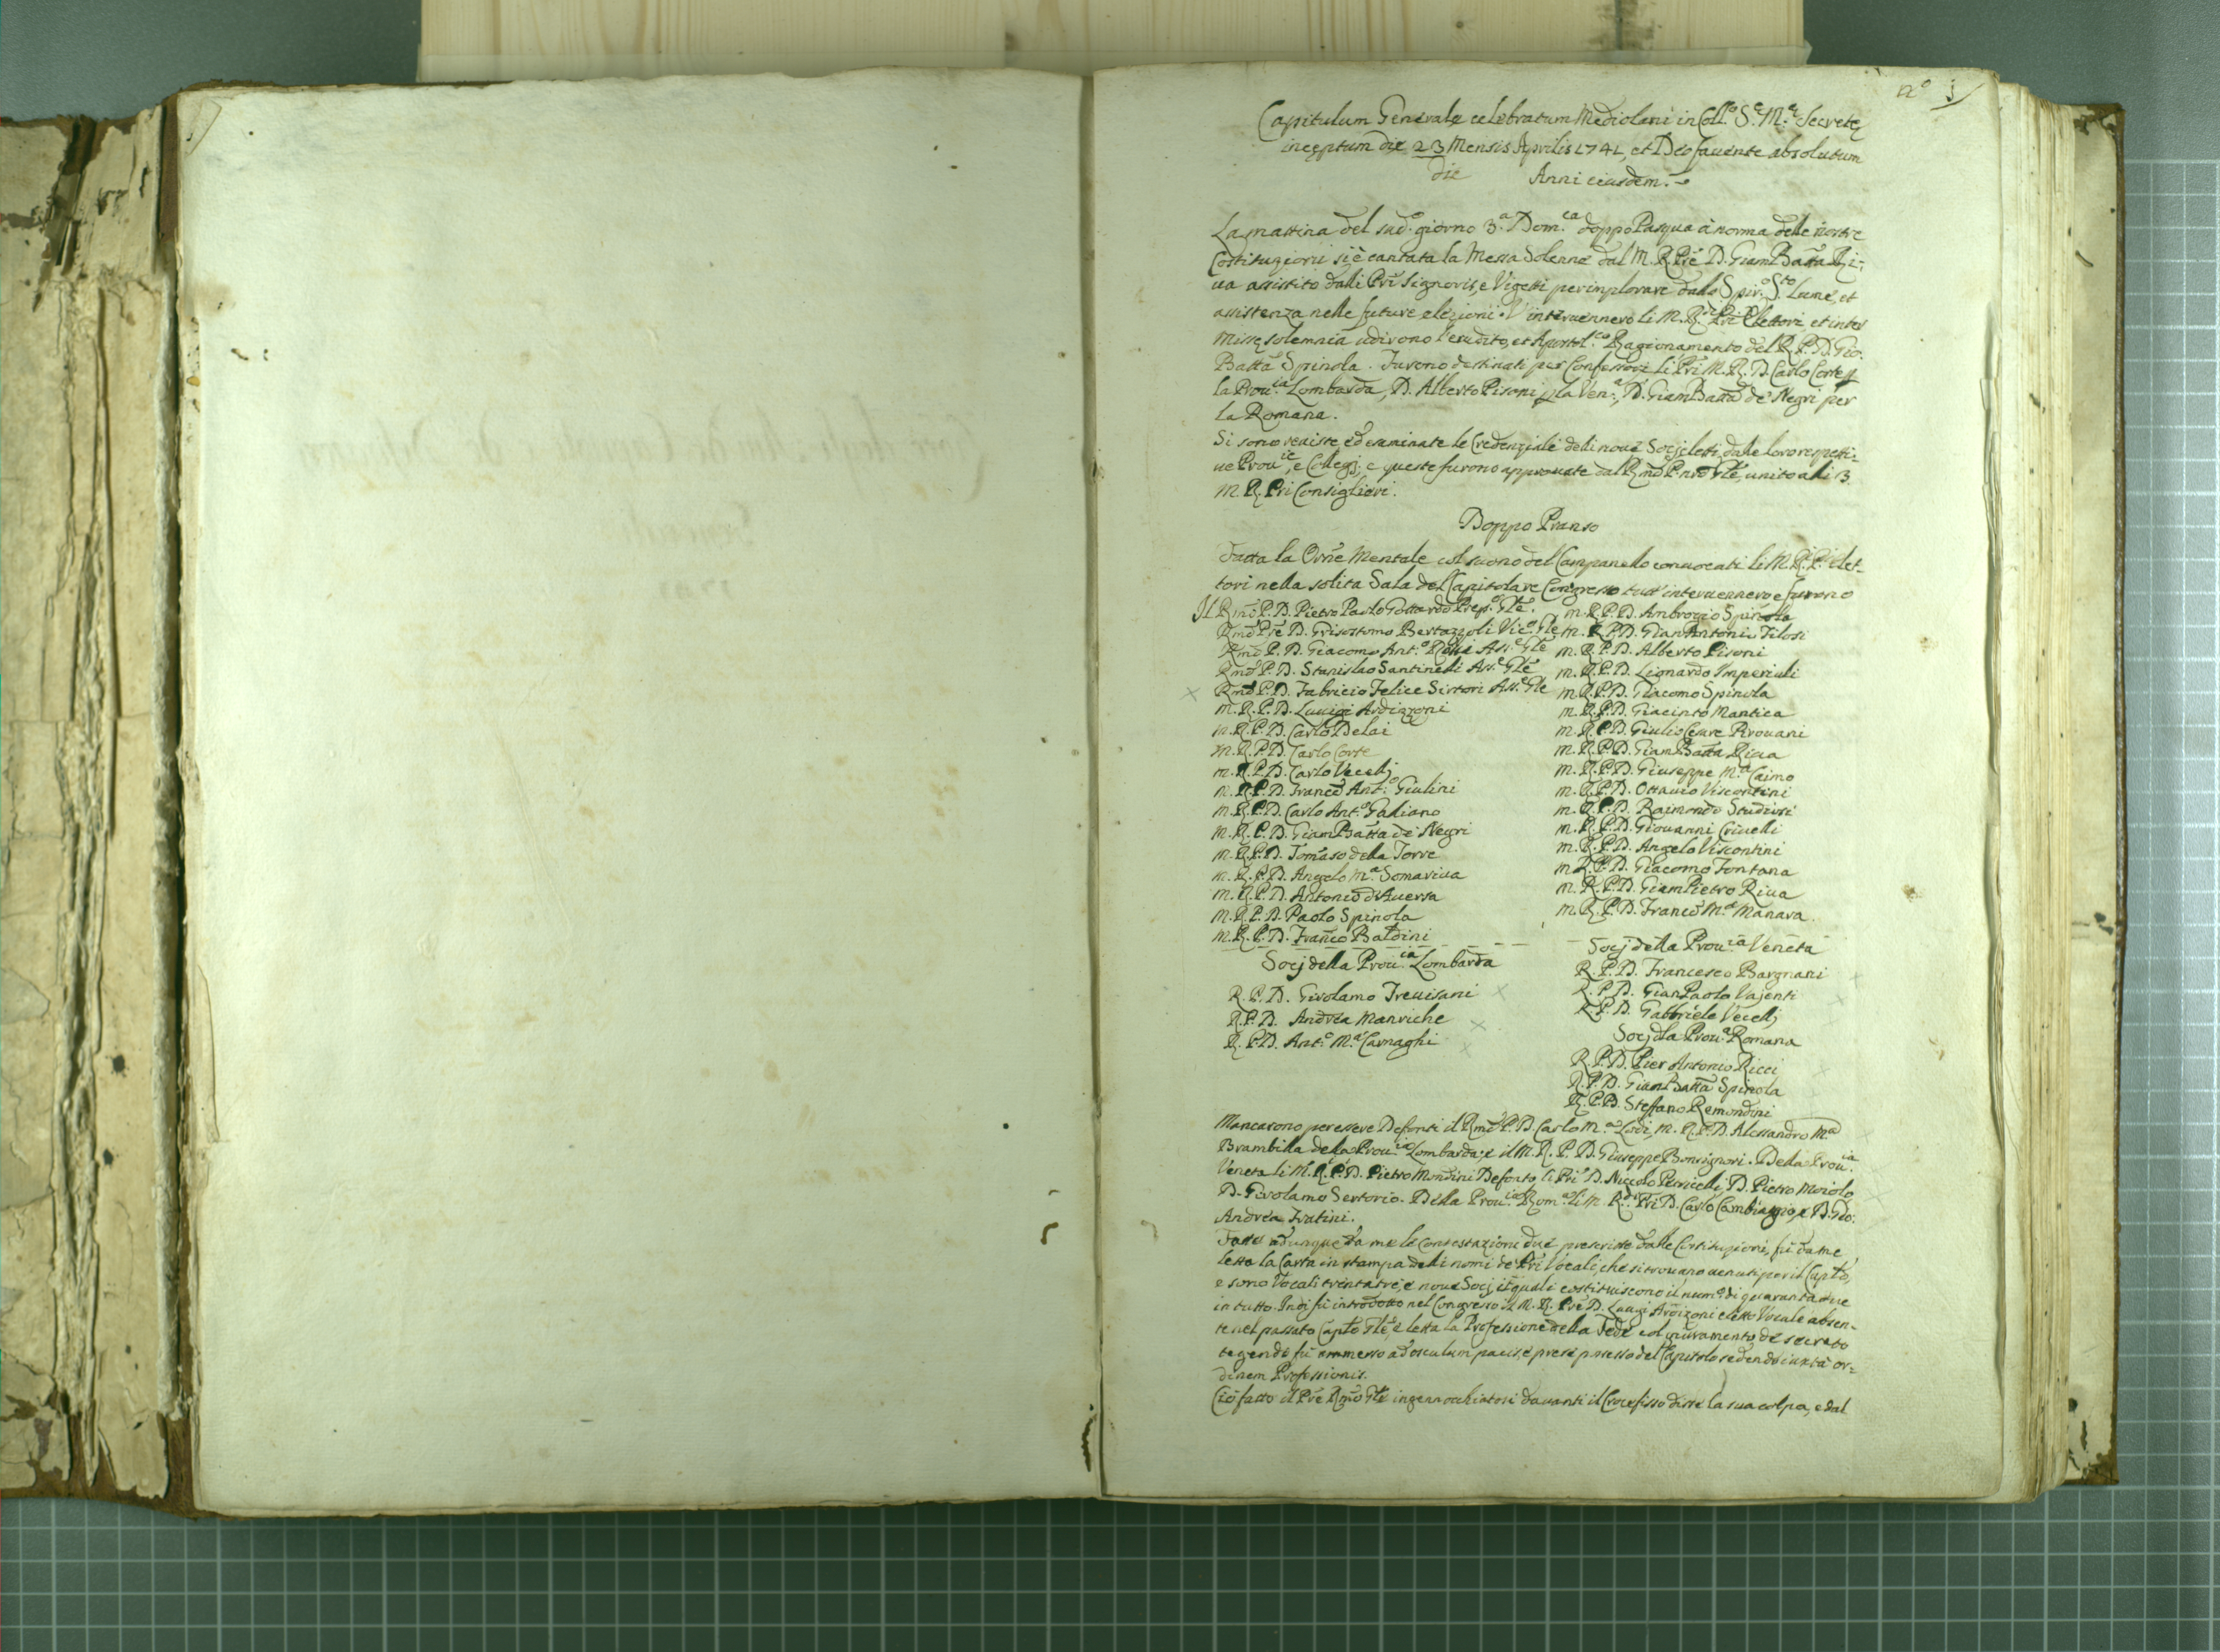 nº 1
Capitulum Generale celebratum Mediolani in Coll.º S.ę M.ę Secretę
inceptum die 23 Mensis Aprilis 1741, et Deo favente absolutum
die Anni eiusdem.
La mattina del sud.º giorno 3.ª Dom.ca doppo Pasqua à norma delle nostre
Costituzioni si è cantata la Messa Solenne dal M. R. Prē D. Giam Batta Ri-
va assistito dalli Pri Signoris, e Vigetti per implorare dallo Spir.º S.to Lume, et
assistenza nelle future elezioni. V'intervennero li M. R. Pri Elettori, et inter
Missę solemnia udirono l'erudito, et Apostol.co Ragionamento del R. P. D. Gio:
Batta Spinola. Furono destinati per Confessori li Pri M. R. D. Carlo Corte p
la Prov.ia Lombarda, D. Alberto Pisoni p la Ven.ª, D. Giam Batta de Negri per
la Romana.
Si sono reviste ed esaminate le Credenziali delli nove Socj eletti dalle loro rispetti-
ve Prov.ie, e Collegj, e queste furono approvate dal Rmo P. nro Gle, unito alli 3
M. R. Pri Consiglieri.
Doppo Pranso
Fatta la Orne Mentale col suono del Campanello convocati li M. R. P. Elet-
tori nella solita Sala del Capitolare Congresso tutt' intervennero e furono
Il Rmo P. D. Pietro Paolo Gottardo Prep.º Gle.
Rmo Pre D. Grisostomo Bertazzoli Vic.º Gle
Rmo P. D. Giacomo Ant.º Rossi Ass.e Gle
Rmo P. D. Stanislao Santinelli Ass.e Gle
× Rmo P. D. Fabricio Felice Sirtori Ass.e Gle
m. R. P. D. Luuigi Ardizzoni
m. R. P. D. Carlo Delai
m. R. P. D. Carlo Corte
m. R. P. D. Carlo Vecelj
m. R. P. D. Franco Ant.º Giulini
m. R. P. D. Carlo Ant.º Galiano
m. R. P. D. Giam Batta de Negri
m. R. P. D. Tomaso della Torre
m. R. P. D. Angelo M.ª Somariva
m. R. P. D. Antonio d'Aversa
m. R. P. D. Paolo Spinola
m. R. P. D. Franco Baldini
m. R. P. D. Ambrogio Spinola
m. R. P. D. Gian Antonio Filosi
m. R. P. D. Alberto Pisoni
m. R. P. D. Lionardo Imperiali
m. R. P. D. Giacomo Spinola
m. R. P. D. Giacinto Mantica
m. R. P. D. Giulio Cesare Pirovani
m. R. P. D. Giam Batta Riva
m. R. P. D. Giuseppe M.ª Caimo
m. R. P. D. Ottavio Viscontini
m. R. P. D. Raimondo Studiosi
m. R. P. D. Giovanni Crivelli
m. R. P. D. Angelo Viscontini
m. R. P. D. Giacomo Fontana
m. R. P. D. Giam Pietro Riva
m. R. P. D. Franco M.ª Manara
Socj della Prov.ia Lombarda
R. P. D. Girolamo Trevisani ×
R. P. D. Andrea Manriche ×
R. P. D. Ant.º M.ª Carnaghi ×
Socj della Prov.ia Veneta
R. P. D. Francesco Bargnani ×
R. P. D. Gian Paolo Vajenti ×
R. P. D. Gabbriele Vecelj
Socj dla Prov.ª Romana
R. P. D. Pier Antonio Ricci
R. P. D. Giam Batta Spinola
R. P. D. Steffano Remondini
Mancarono per essere Defonti il Rmo P. D. Carlo M.ª Lodi, M. R. P. D. Alessandro M.ª
Brambilla della Prov.ia Lombarda; e il M. R. P. D. Giuseppe Bonsignori. Della Prov.ia
Veneta li M. R. P. D. Pietro Mondini Defonto, li Pri D. Niccolo Petricelli, D. Pietro Moiolo,
D. Girolamo Sertorio. Della Prov.ia Rom.ª li M. R.di Pri D. Carlo Cambiaggio, e D. Gio:
Andrea Fratini.
Fatte adunque da me le Contestazioni due prescritte dalle Costituzioni, fù da me
letta la Carta in stampa delli nomi de Pri Vocali, che si trovano venuti per il Capto,
e sono Vocali trentatre, e nove Socj, i quali costituiscono il num.º di quarantadue
in tutto. Indi fù introdotto nel Congresso il M. R. Pre D. Luigi Ardizoni eletto Vocale absen-
te nel passato Capto Gle, e letta la Professione della Fede col giuramento de secreto
tegendo fù ammesso ad osculum pacis, e prese possesso del Capitolo sedendo iuxta or-
dinem Professionis.
Ciò fatto il Pre Rmo Gle ingenocchiatosi davanti il Crocefisso disse la sua colpa, e dal